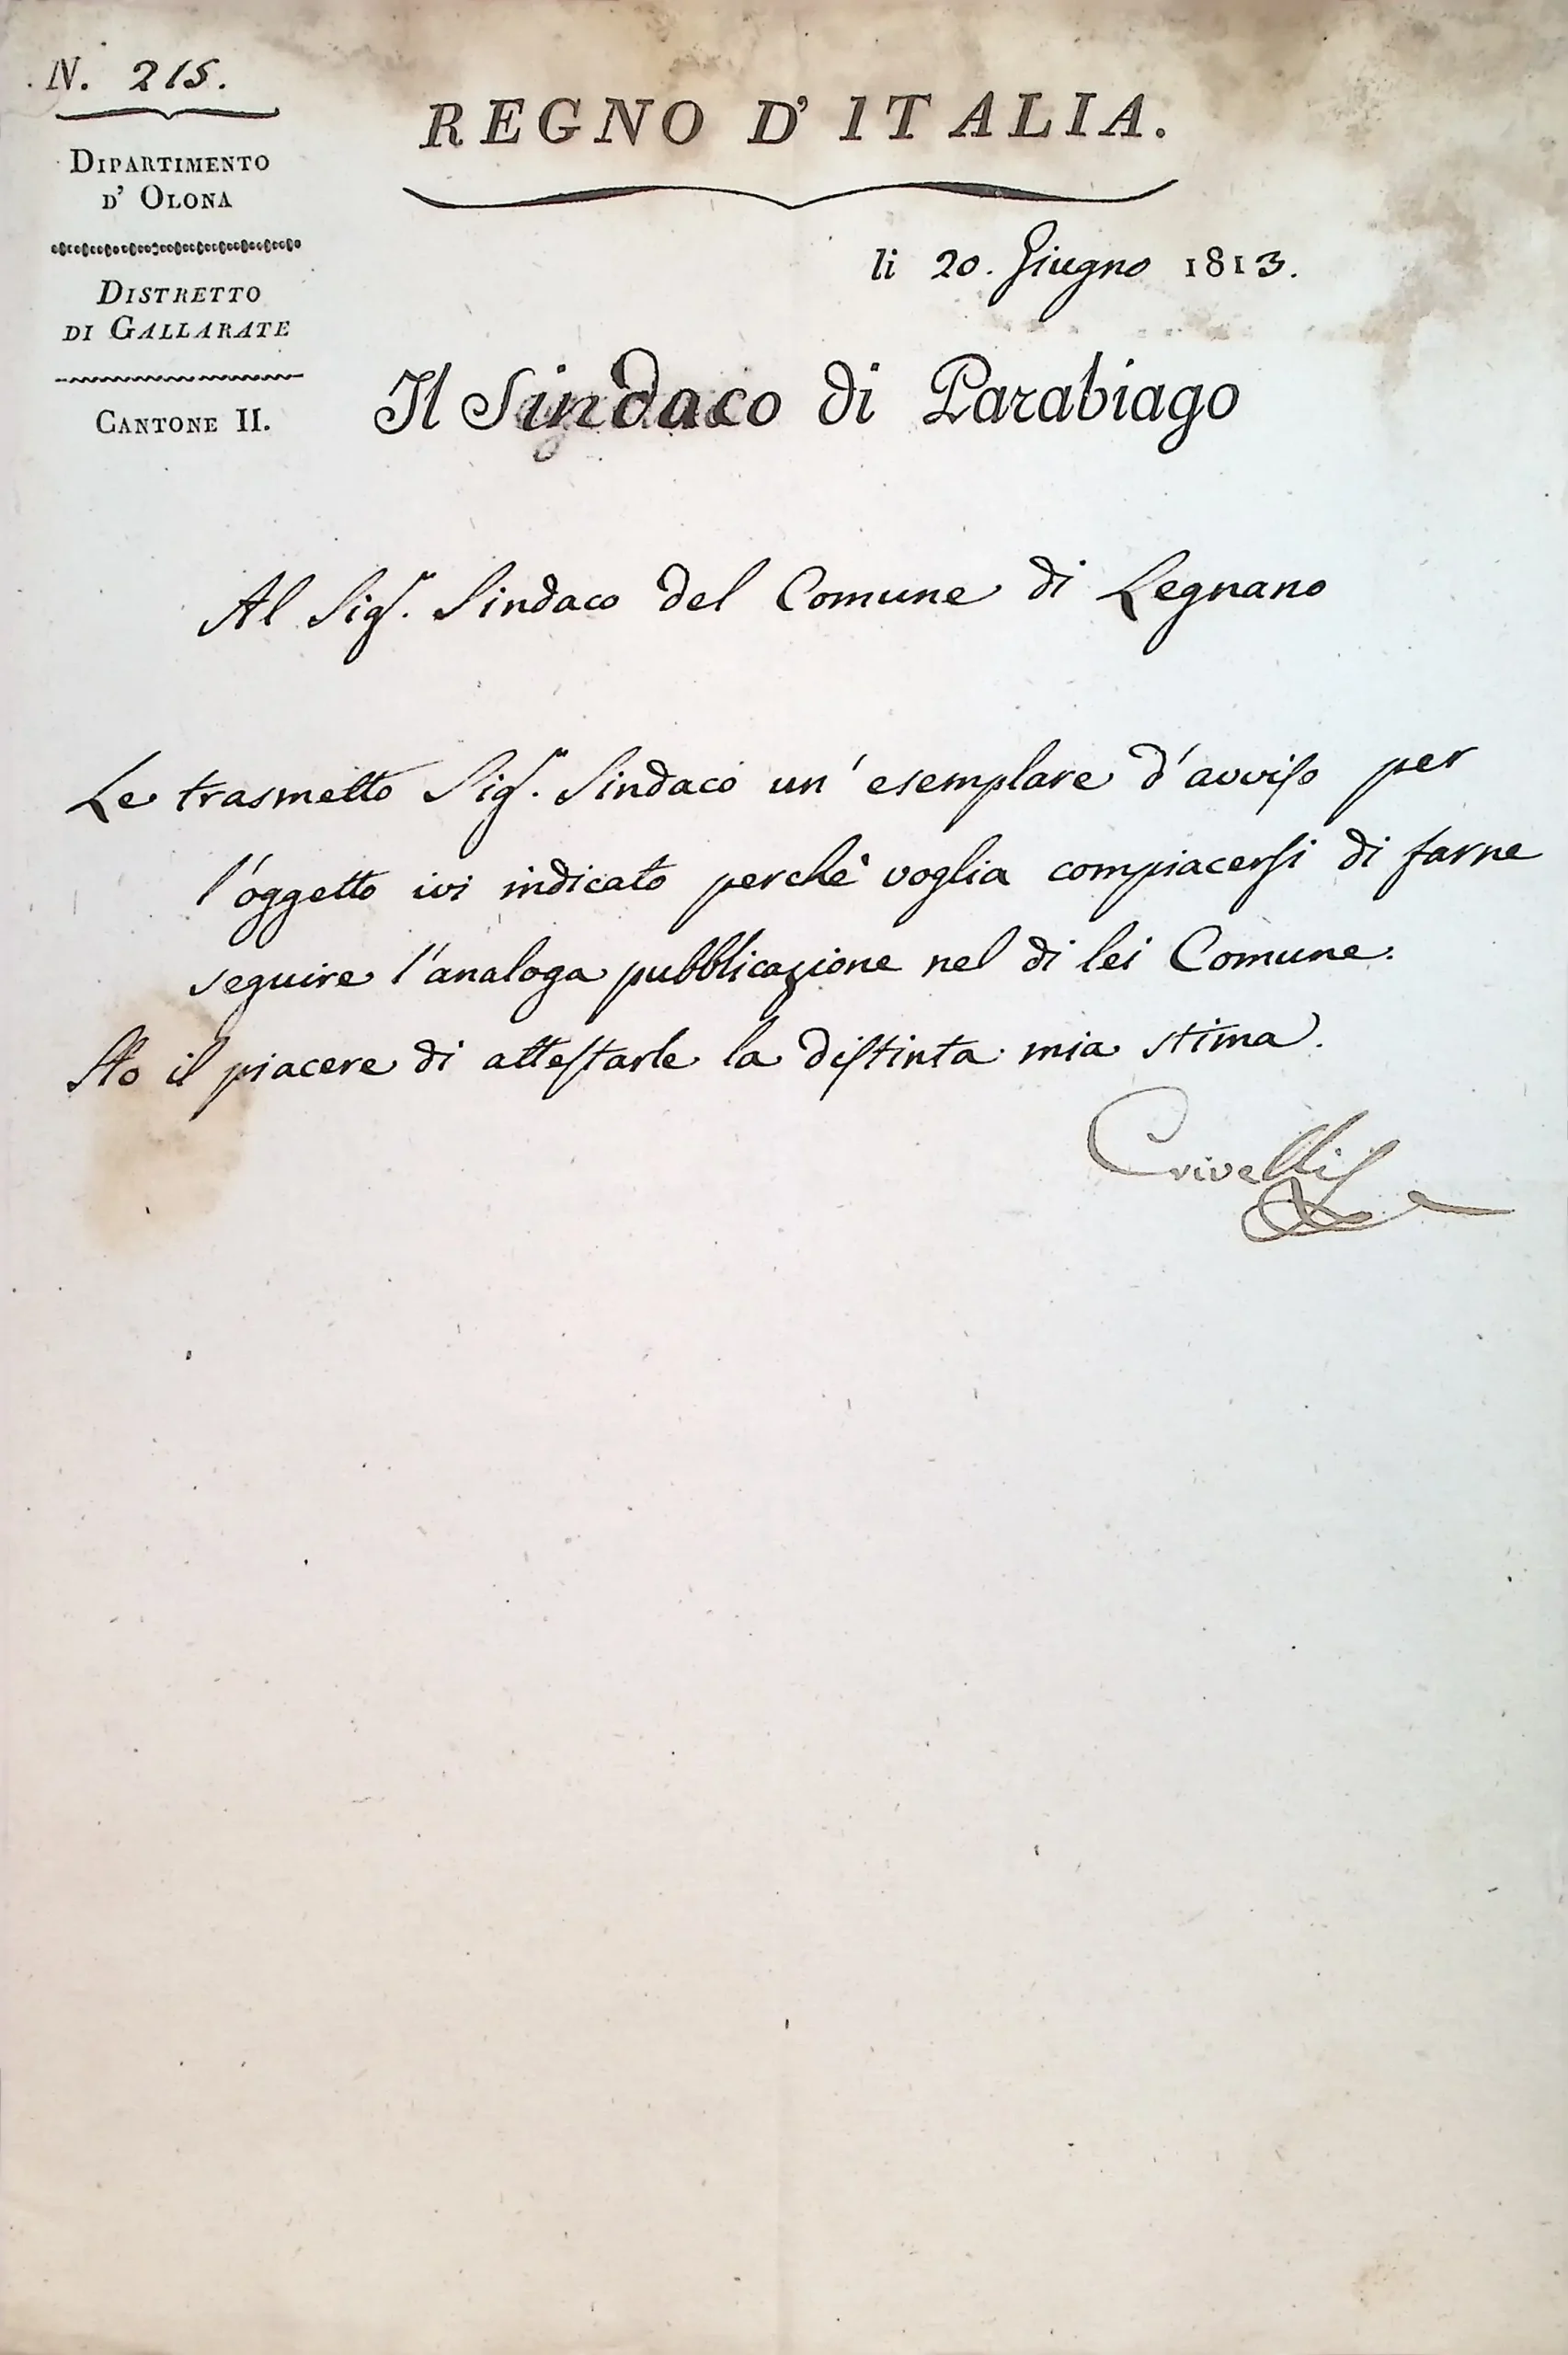 N. 215.
REGNO D' ITALIA.
DIPARTIMENTO
D' OLONA
DISTRETTO
DI GALLARATE
CANTONE II.
li 20. Giugno 1813.
Il Sindaco di Parabiago
Al Sig.r Sindaco del Comune di Legnano
Le trasmetto Sig.r Sindaco un' esemplare d'avviso per
l'oggetto ivi indicato perchè voglia compiacersi di farne
seguire l'analoga pubblicazione nel di lei Comune.
Ho il piacere di attestarle la distinta mia stima.
Crivelli